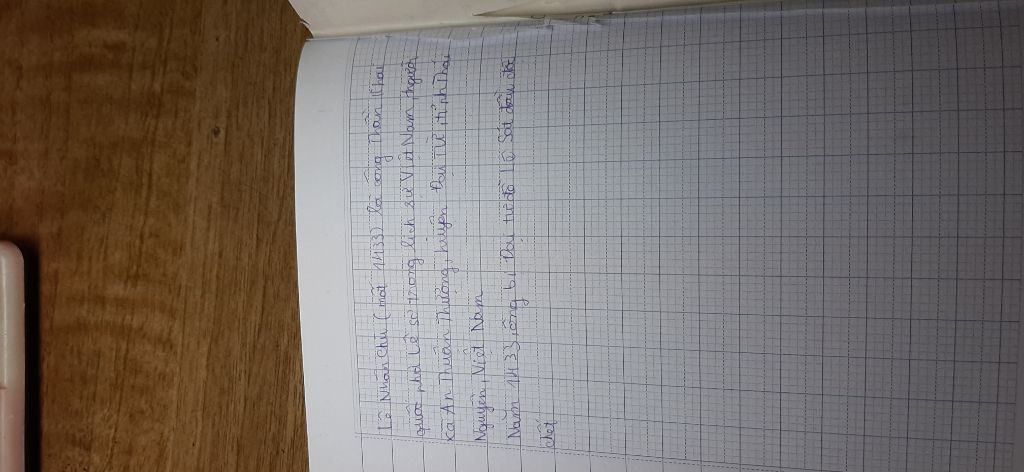 Lê Nhân Chú (mất 1433) là công thần khai
quốc nhà Lê sơ trong lịch sử Việt Nam, người
xã An Thuận Thượng, huyện Đại Từ tỉnh Thái
Nguyên, Việt Nam
Năm 1433, ông bị Đại tư đồ Lê Sát đầu độc
chết